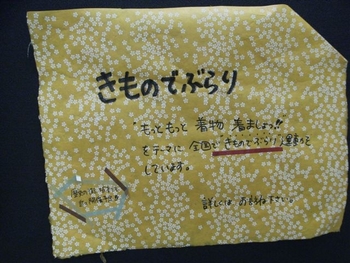 きものでぶらり
"もっともっと 着物 着ましょう!!
をテーマに 全国で きものでぶらり 運動を
しています。
詳しくは お尋ね下さい。